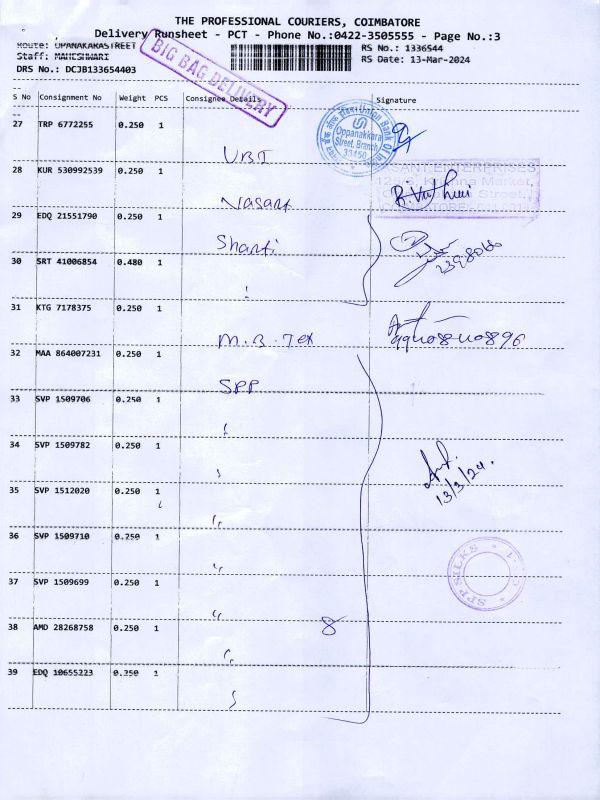 THE PROFESSIONAL COURIERS, COIMBATORE
Delivery Runsheet - PCT - Phone No.:0422-3505555 - Page No.:3
Route: OPANAKARASTREET
RS No.: 1336544
Staff: MAHESHWARI
RS Date: 13-Mar-2024
DRS No.: DCJB133654403
BIG BAG DELIVERY
S No Consignment No Weight PCS Consignee Details Signature
27 TRP 6772255 0.250 1 UBI
Union Bank Of
Oppanakkara
Street, Branch
28 KUR 530992539 0.250 1 Vasant
VASANT ENTERPRISES
29 EDQ 21551790 0.250 1 Shanti
30 SRT 41006854 0.480 1
31 KTG 7178375 0.250 1 M.B. Tex
32 MAA 864007231 0.250 1 SPP
33 SVP 1509706 0.250 1
34 SVP 1509782 0.250 1
35 SVP 1512020 0.250 1
13/3/24.
36 SVP 1509710 0.250 1
37 SVP 1509699 0.250 1
SPP SILKS
38 AMD 28268758 0.250 1 8
39 EDQ 10655223 0.250 1